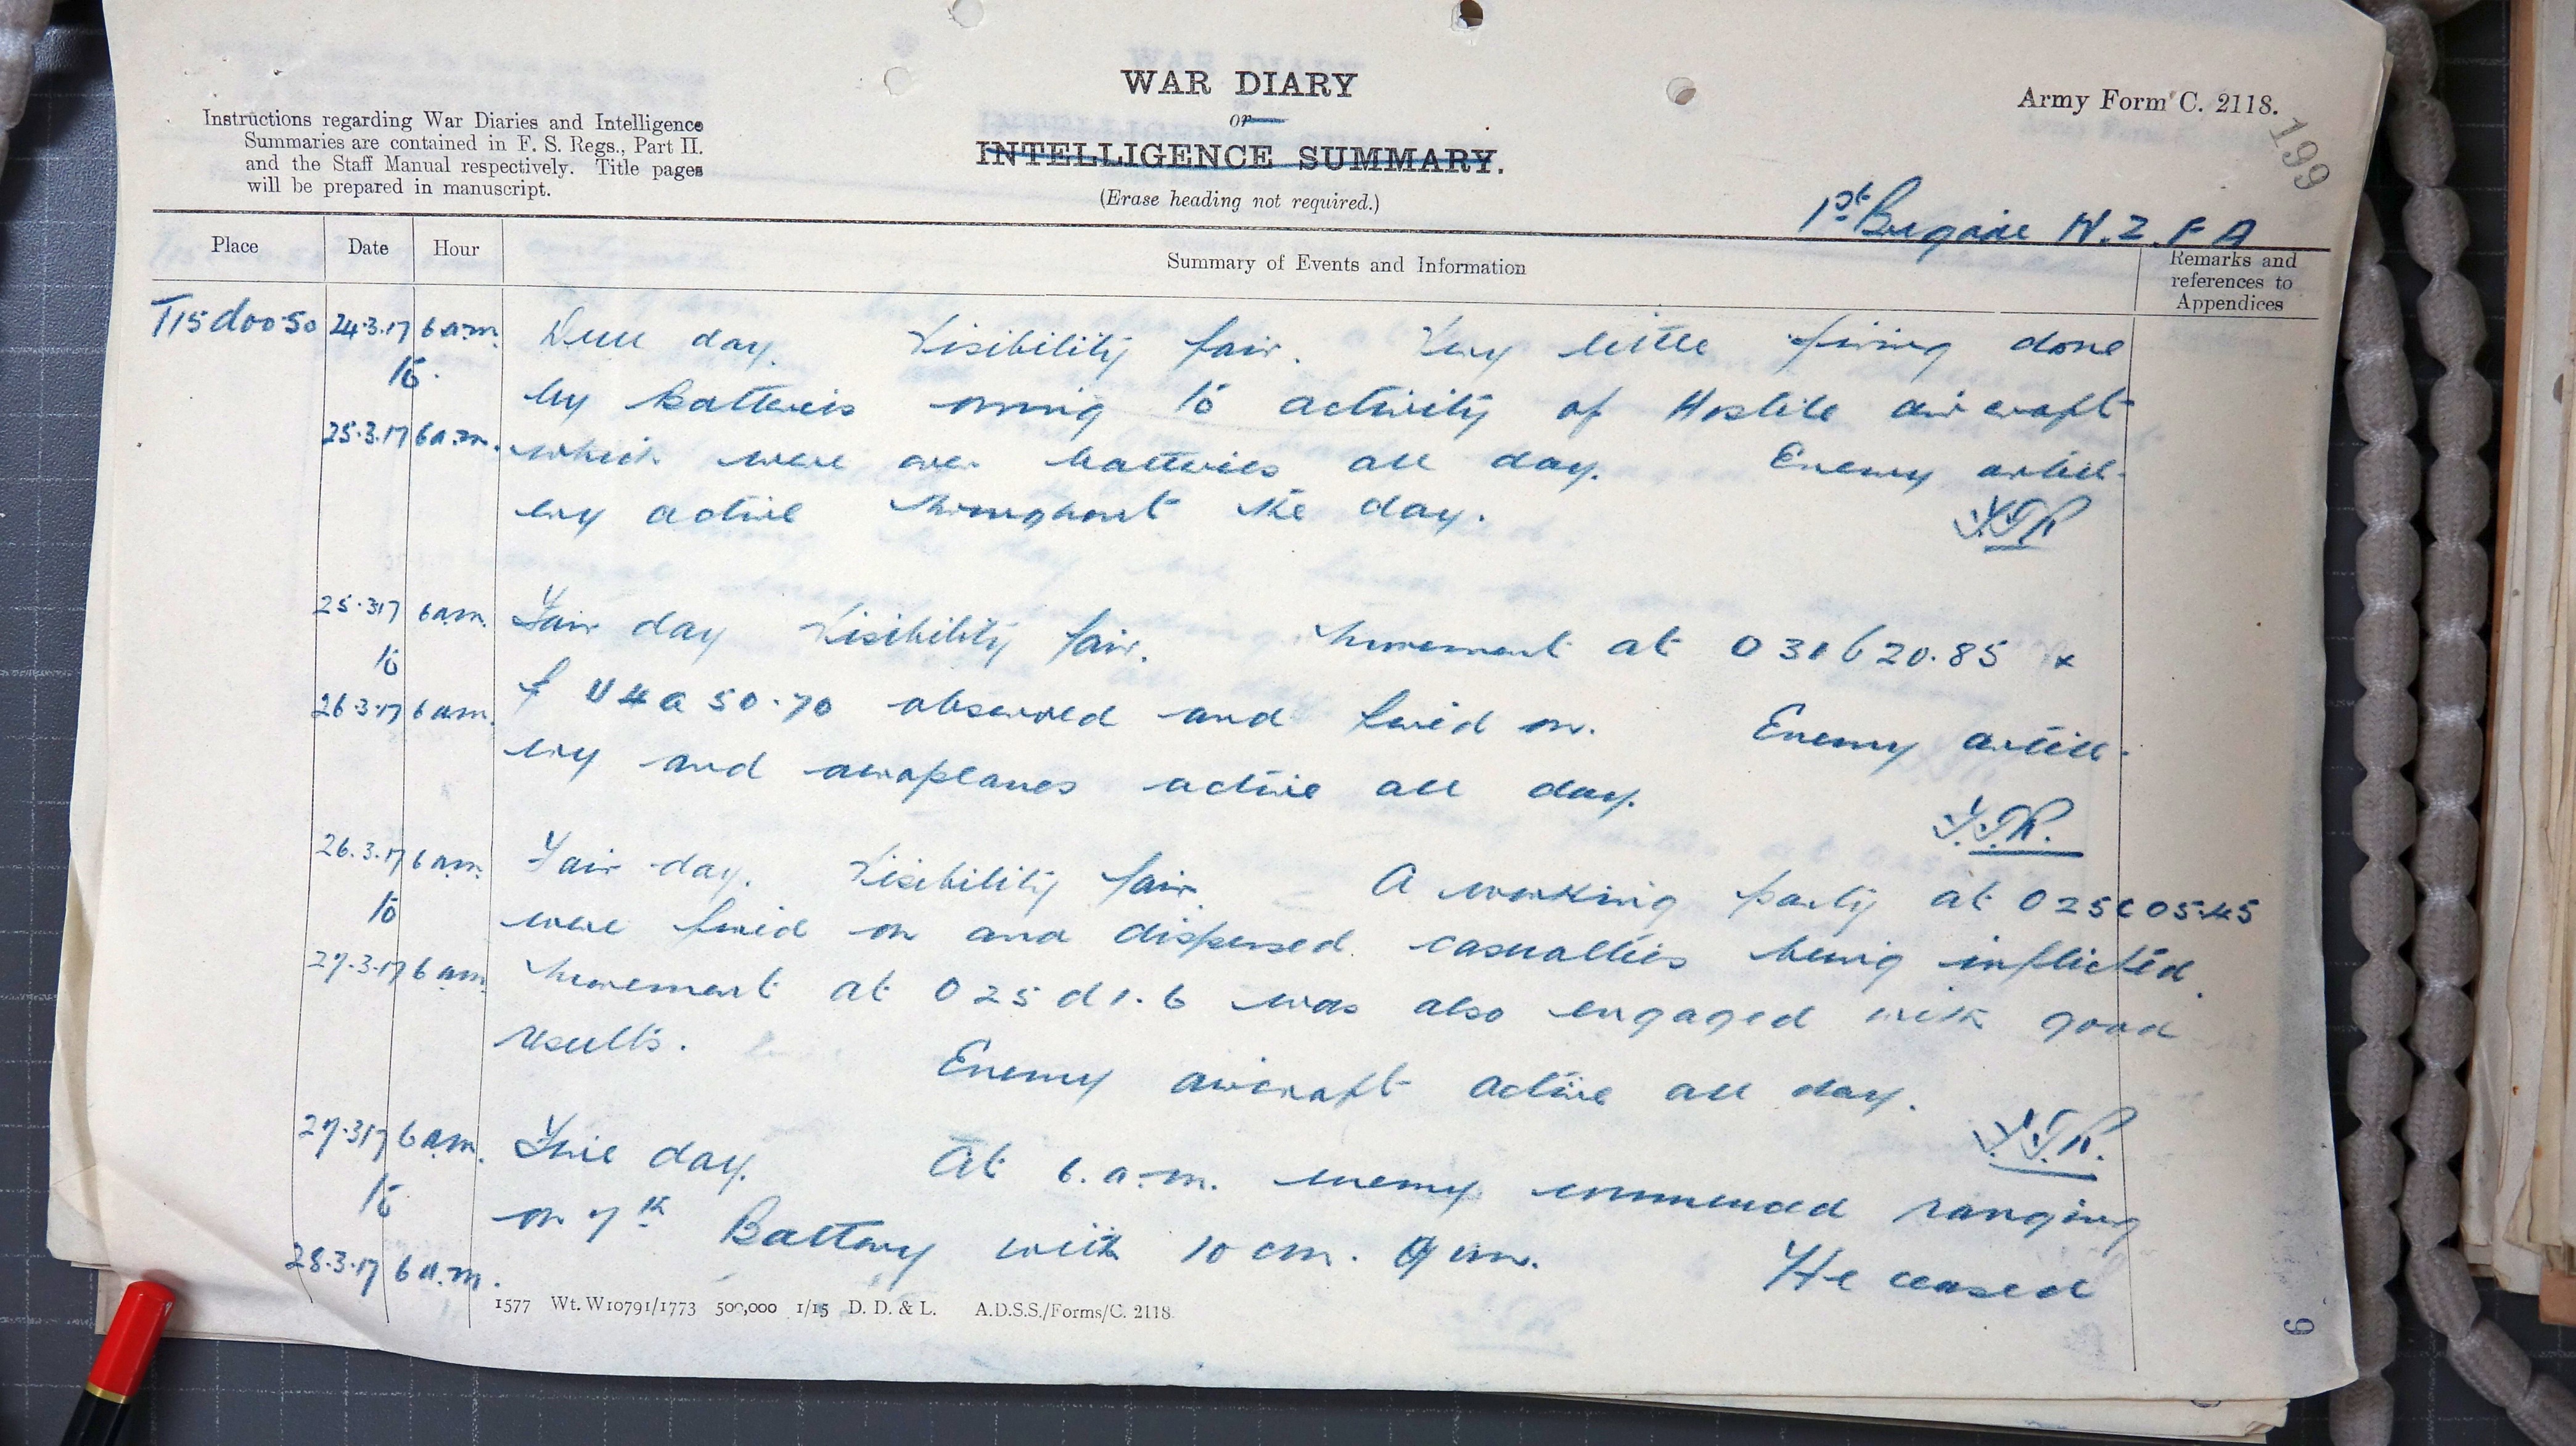 WAR DIARY
or
INTELLIGENCE SUMMARY.
(Erase heading not required.)
Army Form C. 2118.
199
Instructions regarding War Diaries and Intelligence
Summaries are contained in F. S. Regs., Part II.
and the Staff Manual respectively. Title pages
will be prepared in manuscript.
1st Brigade N.Z.F.A
Place Date Hour Summary of Events and Information Remarks and
references to
Appendices
T15d00.50 24.3.17 6 a.m. Dull day. Visibility fair. Very little firing done
to
by Batteries owing to activity of Hostile aircraft
25.3.17 6 a.m. which were over batteries all day. Enemy artill-
ery active throughout the day.
25.3.17 6 a.m. Fair day Visibility fair. Movement at O 31 b 20.85
to
U 4 a 50.70 observed and fired on. Enemy artill-
26.3.17 6 a.m. ery and aeroplanes active all day.
26.3.17 6 a.m. Fair day. Visibility fair. A working party at O 25 c 05.45
to were fired on and dispersed. casualties being inflicted.
27.3.17 6 am Movement at O 25 d 1.6 was also engaged with good
results. Enemy aircraft active all day.
27.3.17 6 a.m. Fine day. At 6. a.m. enemy commenced ranging
to on 7th Battery with 10 cm. Gun. He ceased
28.3.17 6 a.m.
1577 Wt. W10791/1773 500,000 1/15 D. D. & L. A.D.S.S./Forms/C. 2118.